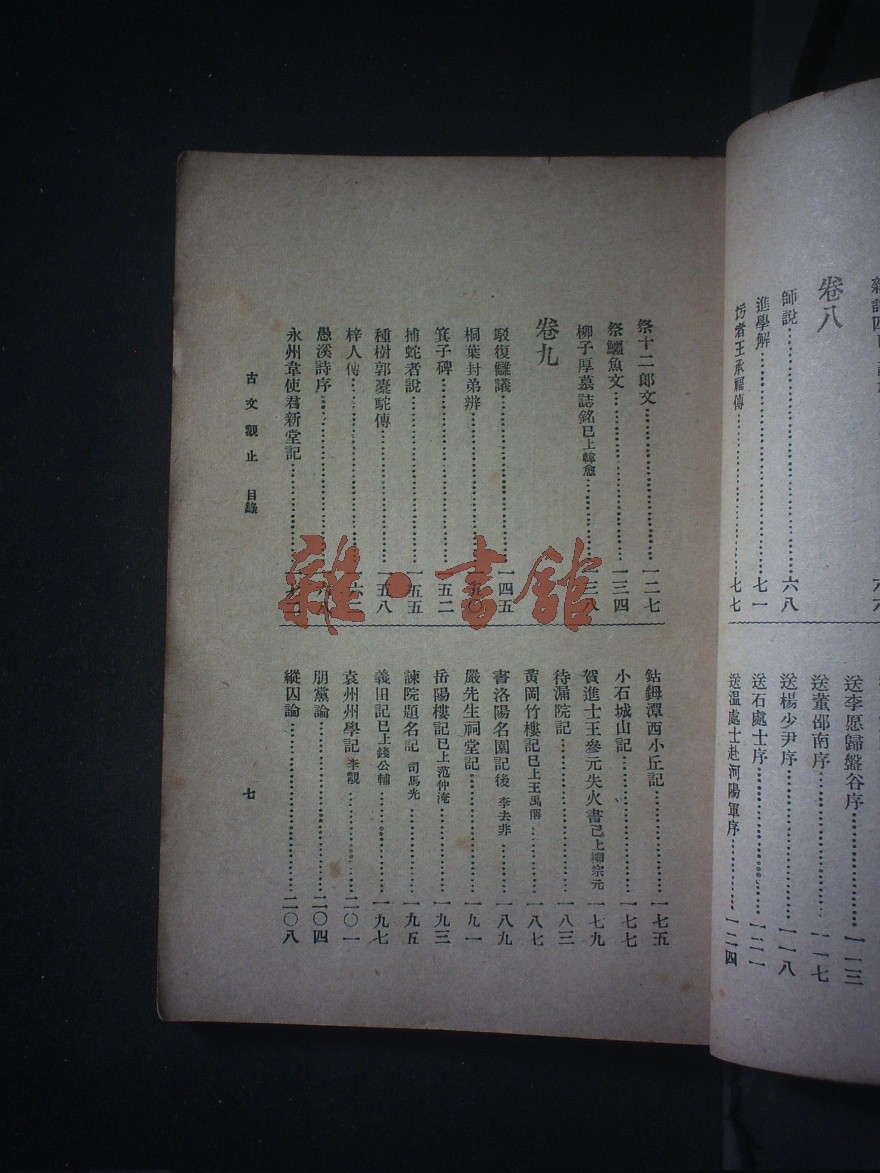 卷八
師說 六八
進學解 七一
圬者王承福傳 七七
送李愿歸盤谷序 一一三
送董邵南序 一一七
送楊少尹序 一一八
送石處士序 一二一
送溫處士赴河陽軍序 一二四
祭十二郎文 一二七
祭鱷魚文 一三四
柳子厚墓誌銘已上韓愈 一三八
卷九
駁復讎議 一四五
桐葉封弟辨 一五〇
箕子碑 一五二
捕蛇者說 一五五
種樹郭橐駝傳 一五八
梓人傳
愚溪詩序
永州韋使君新堂記
鈷鉧潭西小丘記 一七五
小石城山記 一七七
賀進士王參元失火書已上柳宗元 一七九
待漏院記 一八三
黃岡竹樓記已上王禹偁 一八七
書洛陽名園記後 李去非 一八九
嚴先生祠堂記 一九一
岳陽樓記已上范仲淹 一九三
諫院題名記 司馬光 一九五
義田記已上錢公輔 一九七
袁州州學記 李覯 二〇一
朋黨論 二〇四
縱囚論 二〇八
古文觀止 目錄
七
雜·書館